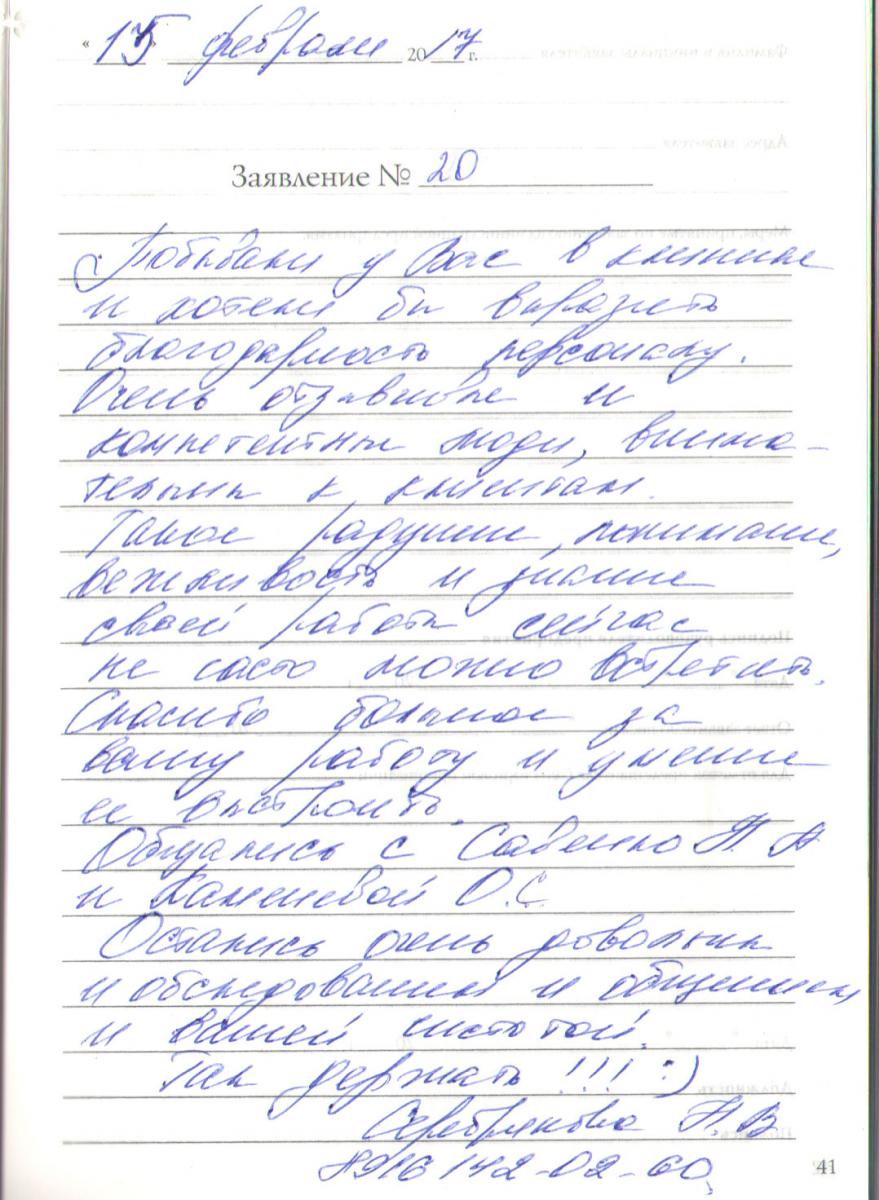 "15" февраля 2017 г.
Заявление № 20
Побывали у Вас в клинике
и хотели бы выразить
благодарность персоналу.
Очень отзывчивые и
компетентные люди, внима-
тельны к клиентам.
Такое радушие, понимание,
вежливость и знание
своей работы сейчас
не часто можно встретить.
Спасибо большое за
вашу работу и умение
её выстроить.
Общались с Савенко Н. А
и Каменевой О.С.
Остались очень довольны
и обследованием и общением
и вашей чистотой.
Так держать !!! :)
Серебрякова Н.В
8916 142-02-60
41